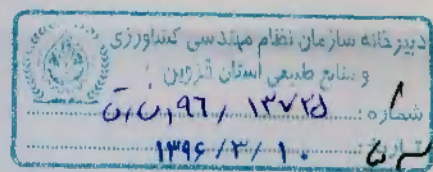 دبیرخانه سازمان نظام مهندسی کشاورزی
و منابع طبیعی استان قزوین
شماره: ۱۳۷۲۵ / ۹۶
تاریخ: ۱۳۹۶/۳/۱۰